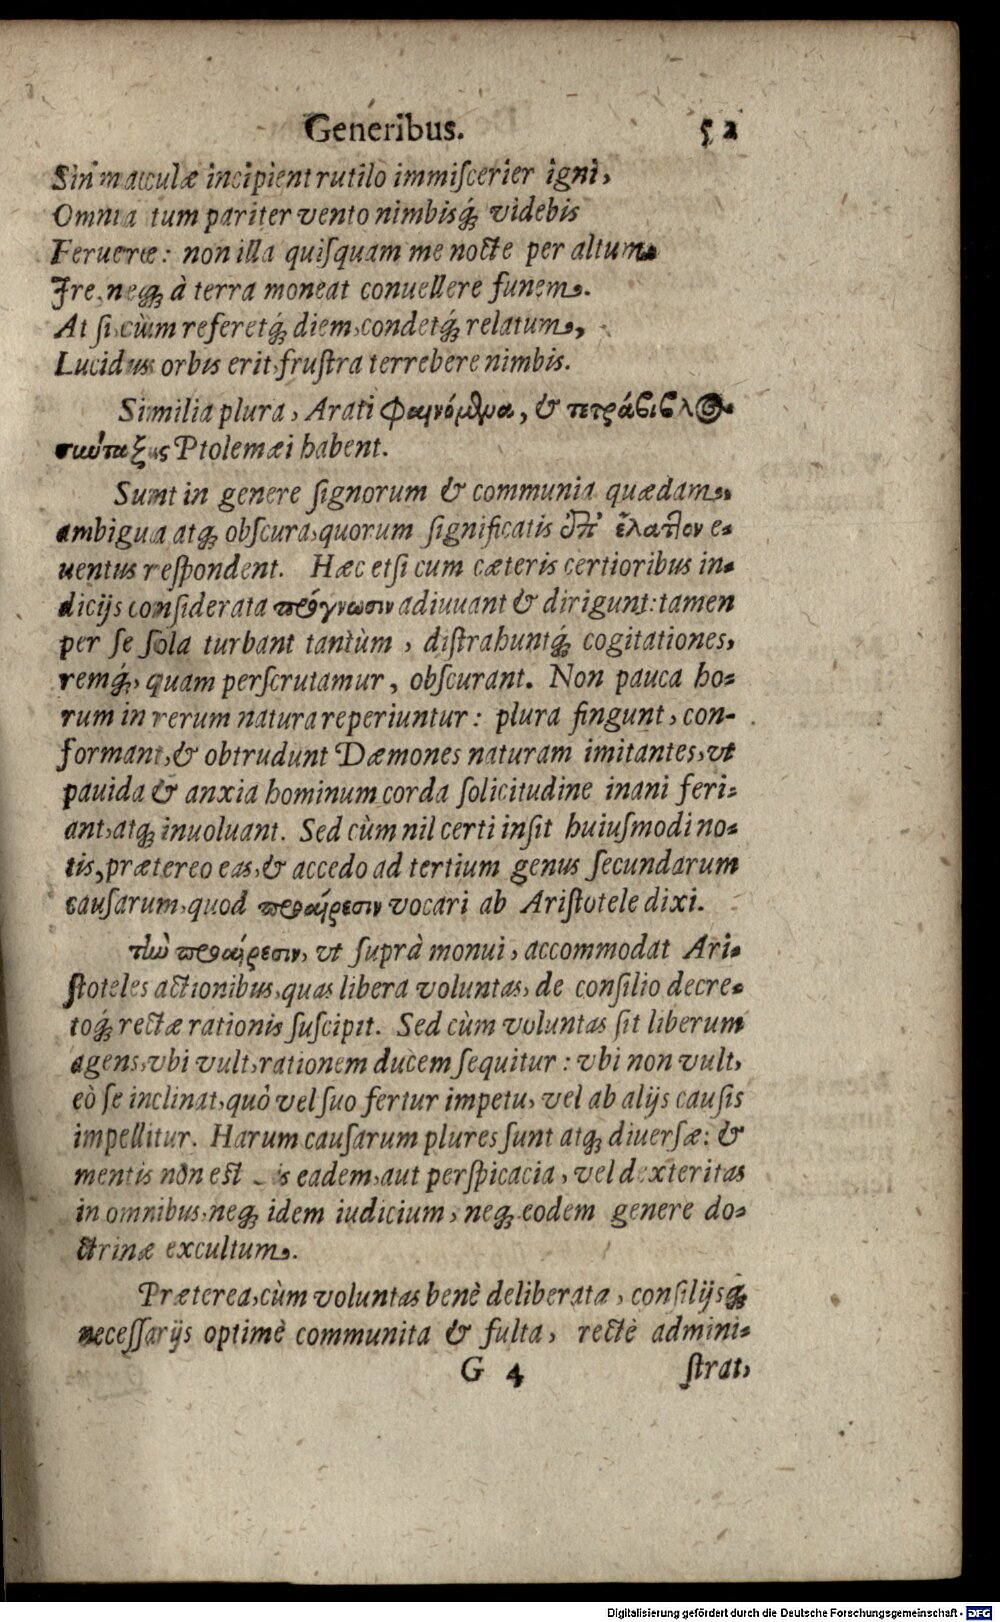 Generibus. 52
Sin maculæ incipient rutilo immiſcerier igni,
Omnia tum pariter vento nimbisq́ videbis
Feruere: non illa quiſquam me nocte per altum
Ire, neq à terra moneat conuellere funem.
At ſi, cùm referetq́ diem, condetq́ relatum,
Lucidus orbis erit, fruſtra terrebere nimbis.
Similia plura, Arati Φαινόμενα, &
Ptolemæi habent.
Sunt in genere ſignorum & communia quædam
ambigua atq obſcura, quorum ſignificatis ἐπ' ἔλαττον e-
uentus reſpondent. Hæc etſi cum cæteris certioribus in-
dicijs conſiderata πρόγνωσιν adiuuant & dirigunt: tamen
per ſe ſola turbant tantùm, diſtrahuntq́ cogitationes,
remq́, quam perſcrutamur, obſcurant. Non pauca ho-
rum in rerum natura reperiuntur: plura fingunt, con-
formant, & obtrudunt Dæmones naturam imitantes, vt
pauida & anxia hominum corda ſolicitudine inani feri-
ant, atq inuoluant. Sed cùm nil certi inſit huiuſmodi no-
tis, prætereo eas, & accedo ad tertium genus ſecundarum
cauſarum, quod προαίρεσιν vocari ab Ariſtotele dixi.
τὴν προαίρεσιν, vt ſuprà monui, accommodat Ari-
ſtoteles actionibus, quas libera voluntas, de conſilio decre-
toq́ rectæ rationis ſuſcipit. Sed cùm voluntas ſit liberum
agens, vbi vult, rationem ducem ſequitur: vbi non vult,
eò ſe inclinat, quò vel ſuo fertur impetu, vel ab alijs cauſis
impellitur. Harum cauſarum plures ſunt atq diuerſæ: &
mentis non est eadem, aut perſpicacia, vel dexteritas
in omnibus, neq idem iudicium, neq eodem genere do-
ctrinæ excultum.
Præterea, cùm voluntas benè deliberata, conſilijsq
neceſſarijs optimè communita & fulta, rectè admini-
G 4 ſtrat,
Digitalisierung gefördert durch die Deutsche Forschungsgemeinschaft - DFG